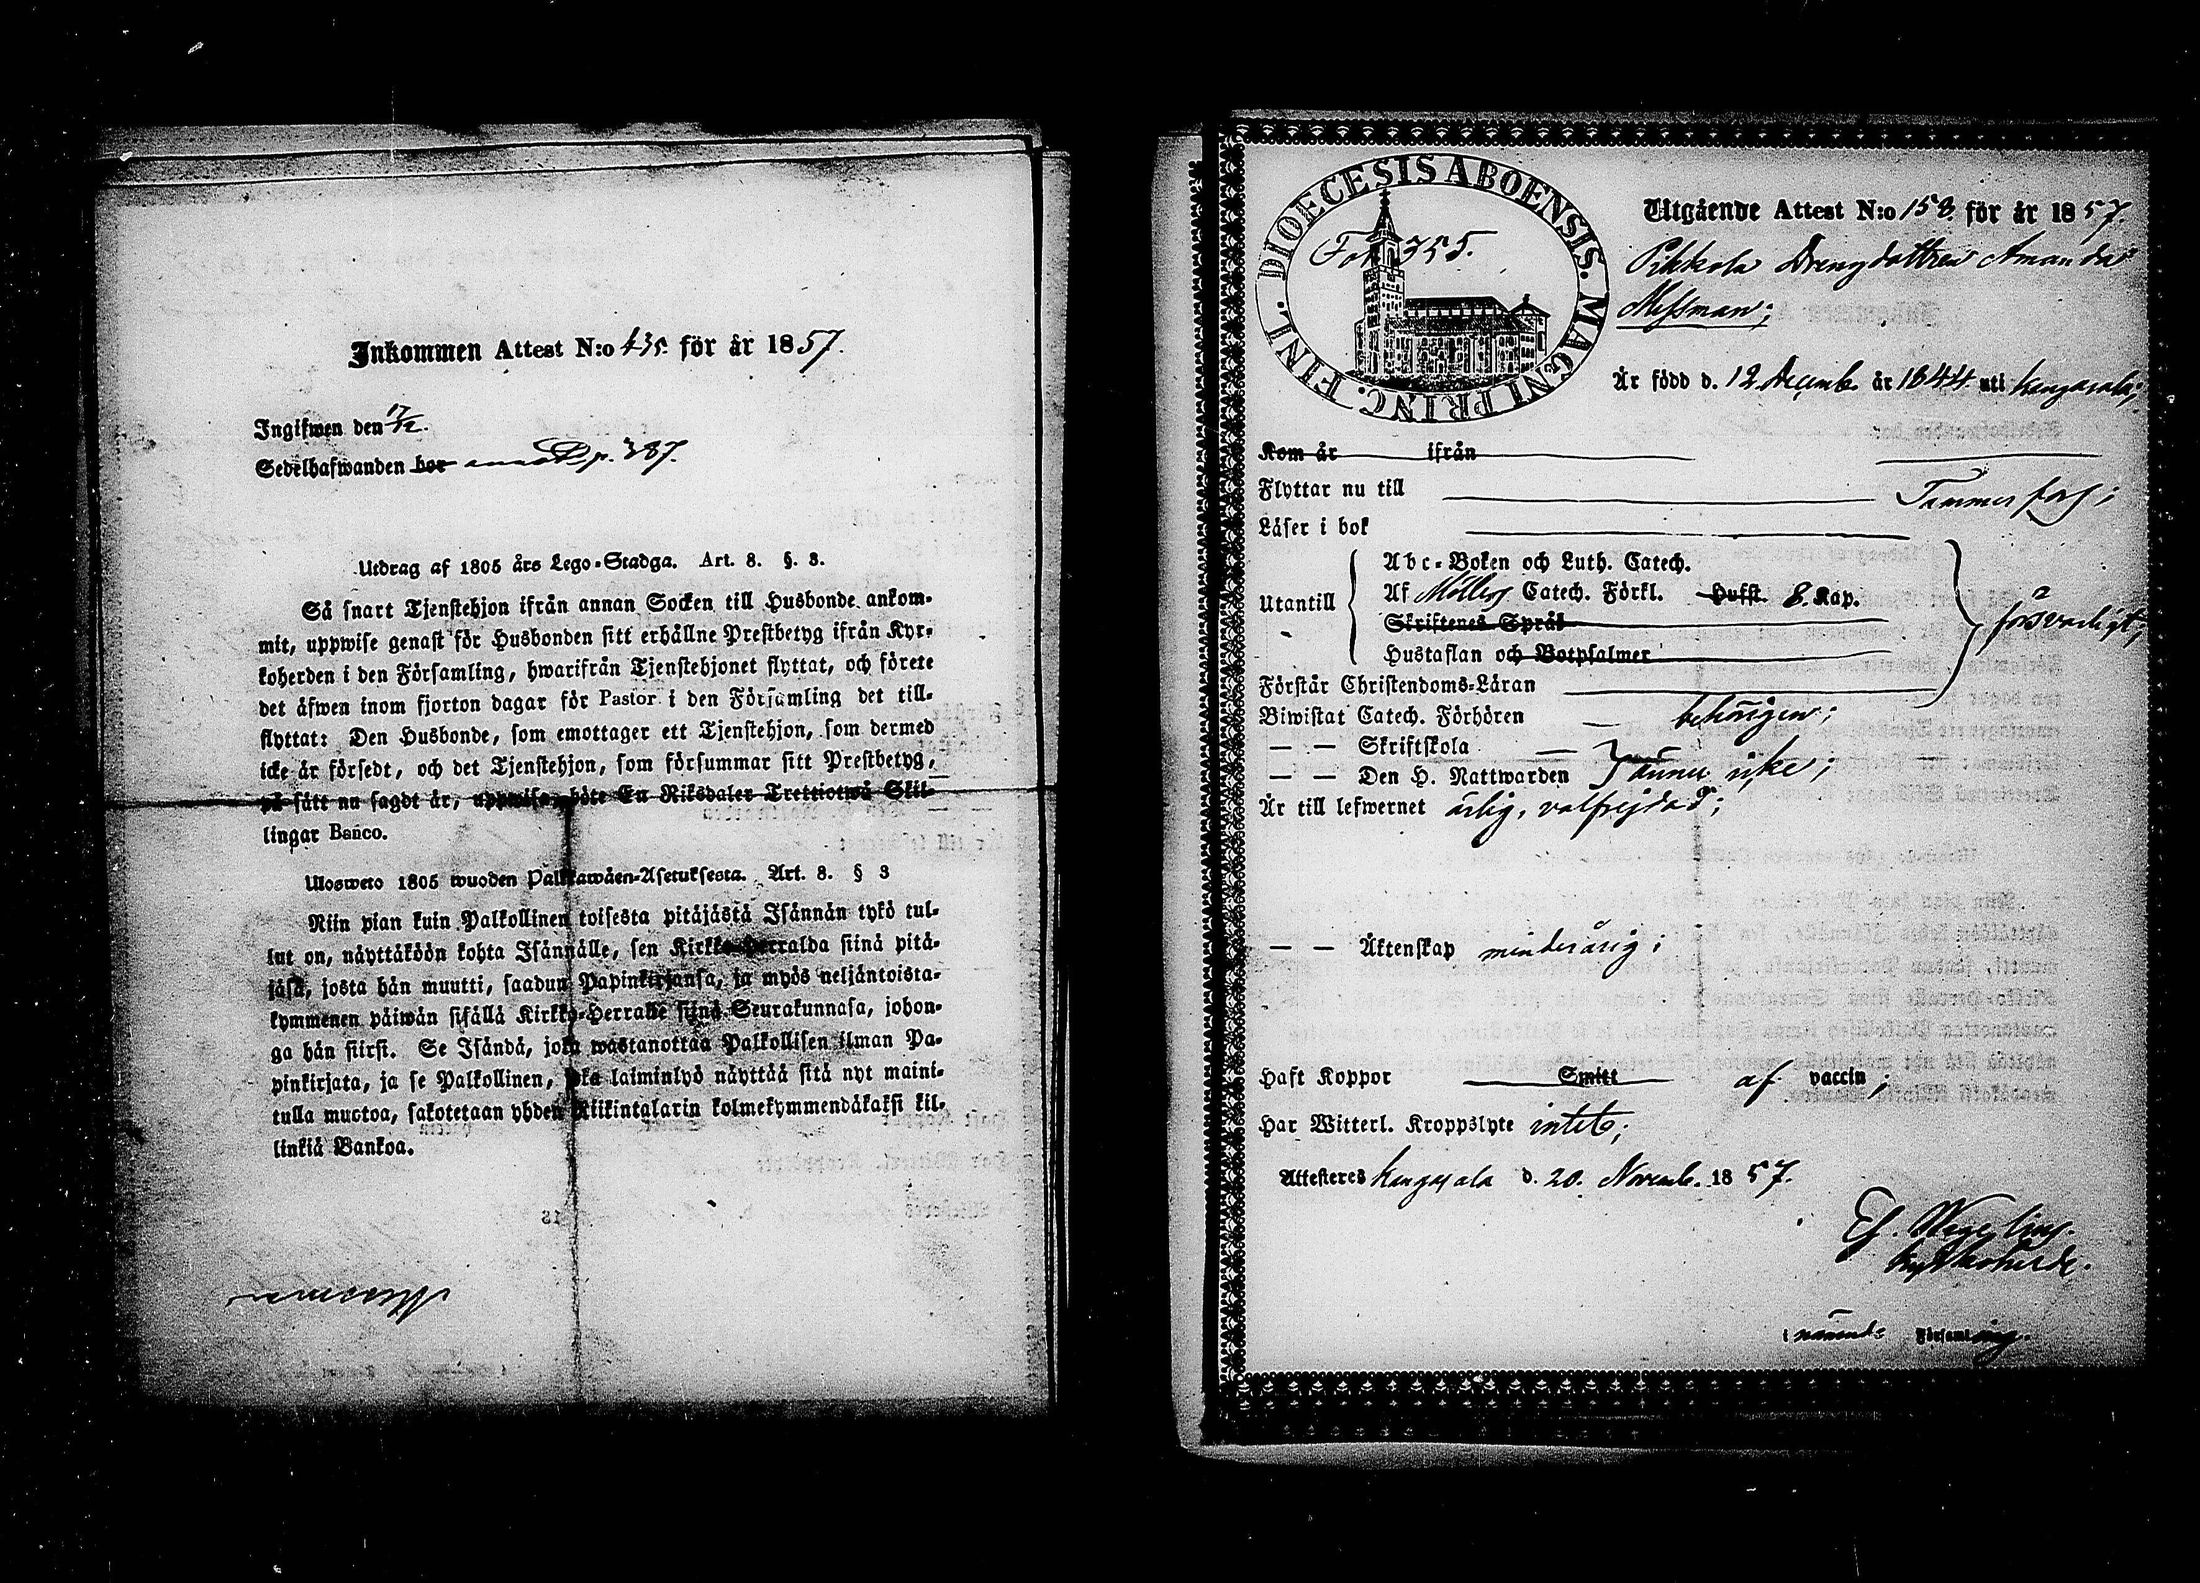 Inkommen Attest N:o 435. för år 1857.
Ingifwen den 17/12.
Sedelhafwanden bor p. 387.
Utdrag af 1805 års Lego-Stadga. Art. 8. §. 3.
Så snart Tjenstehjon ifrån annan Socken till Husbonde ankom-
mit, uppwise genast för Husbonden sitt erhållne Prestbetyg ifrån Kyr-
koherden i den Församling, hwarifrån Tjenstehjonet flyttat, och förete
det äfwen inom fjorton dagar för Pastor i den Församling det till-
flyttat: Den Husbonde, som emottager ett Tjenstehjon, som dermed
icke är försedt, och det Tjenstehjon, som försummar sitt Prestbetyg,
på sätt nu sagdt är, uppwisa, böte En Riksdaler Trettiotwå Skil-
lingar Banco.
Ulosweto 1805 wuoden Palkkawäen-Asetuksesta. Art. 8. § 3
Niin pian kuin Palkollinen toisesta pitäjästä Isännän tykö tul-
lut on, näyttäköön kohta Isännälle, sen Kirkko-Herralda siinä pitä-
jäsä, josta hän muutti, saadun Papinkirjansa, ja myös neljäntoista-
kymmenen päiwän sisällä Kirkko-Herralle siinä Seurakunnasa, johon-
ga hän siirsi. Se Isändä, joka wastanottaa Palkollisen ilman Pa-
pinkirjata, ja se Palkollinen, joka laiminlyö näyttää sitä nyt maini-
tulla muotoa, sakotetaan yhden Riikintalarin kolmekymmendäkaksi kil-
linkiä Bankoa.
DIOECESIS ABOENSIS. MAGNI PRINC. FINL.
Fol. 355.
Utgående Attest N:o 158. för år 1857.
Pikkola Drengdottren Amanda
Messman;
Är född d. 12 Decemb. år 1844 uti Kangasala;
Kom år ifrån
Flyttar nu till Tammerfors;
Läser i bok
Utantill
Abc-Boken och Luth. Catech.
Af Möllers Catech. Förkl. Husst. 8. Kap.
Skriftenes Språk
Hustaflan och Botpsalmer
försvarligt;
Förstår Christendoms-Läran
Biwistat Catech. Förhören behörigen;
— — Skriftskola
— — Den H. Nattwarden ännu icke;
Är till lefwernet ärlig, välfrejdad;
— — Äktenskap minderårig;
Haft Koppor Smitt af vaccin;
Har Witterl. Kroppslyte intet;
Attesteras Kangasala d. 20. Novemb. 1857.
Ef. Wegelius.
Kyrkoherde.
i nämnde Församling.